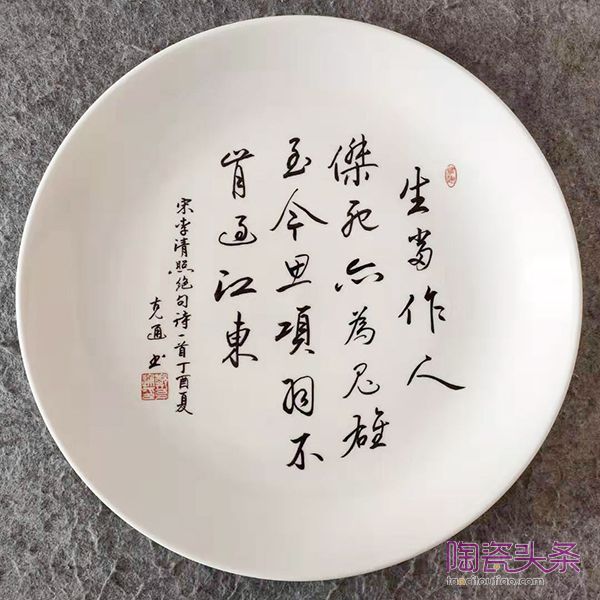 生當作人
傑死亦為鬼雄
至今思項羽不
肯過江東
宋李清照絕句诗一首丁酉夏
克通书
陶瓷头条
taocitoutiao.com